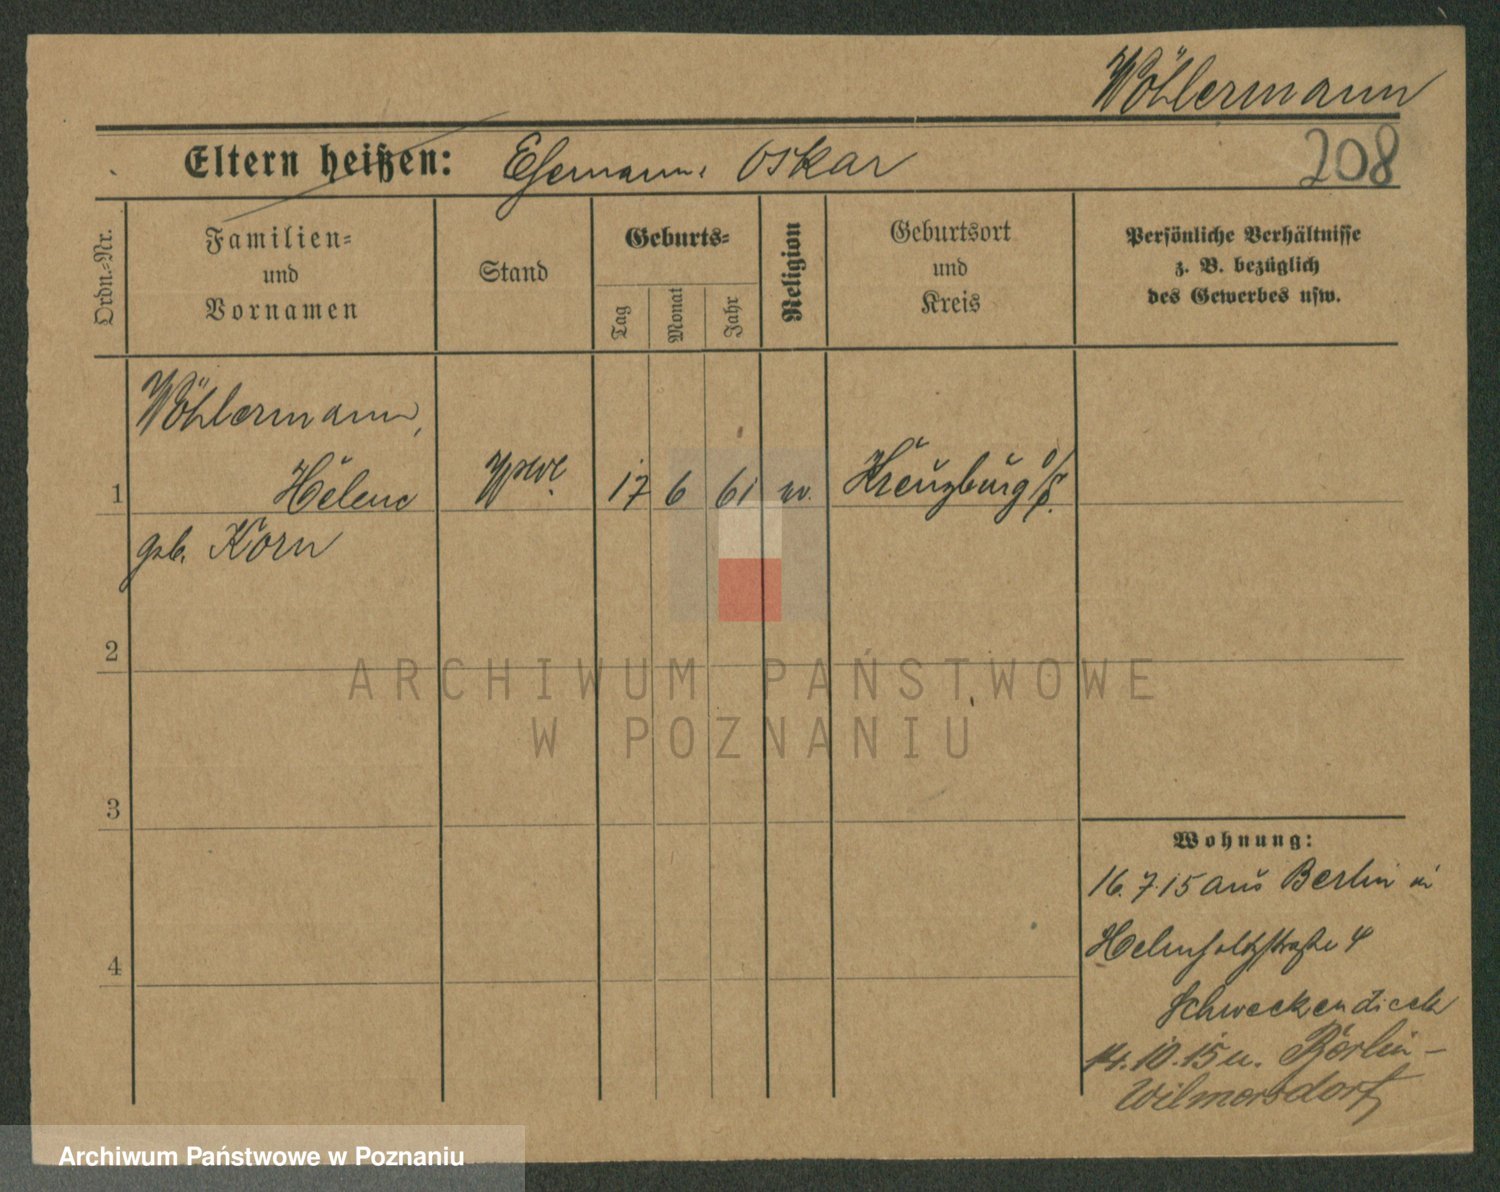 Wöhlermann
Eltern heißen: Ehemann: Oskar 208
Ordn.-Nr.
Familien-
und
Vornamen
Stand
Geburts-
Tag
Monat
Jahr
Religion
Geburtsort
und
Kreis
Persönliche Verhältnisse
z. B. bezüglich
des Gewerbes usw.
Wöhlermann,
1 Helene Wwe. 17 6 61 ev. Kreuzburg o/S.
geb. Korn
2
3
4
Wohnung:
16.7.15 aus Berlin in
Helmholtzstraße 4
Schweckendieck
14.10.15 n. Berlin-
Wilmersdorf
ARCHIWUM PAŃSTWOWE
W POZNANIU
Archiwum Państwowe w Poznaniu